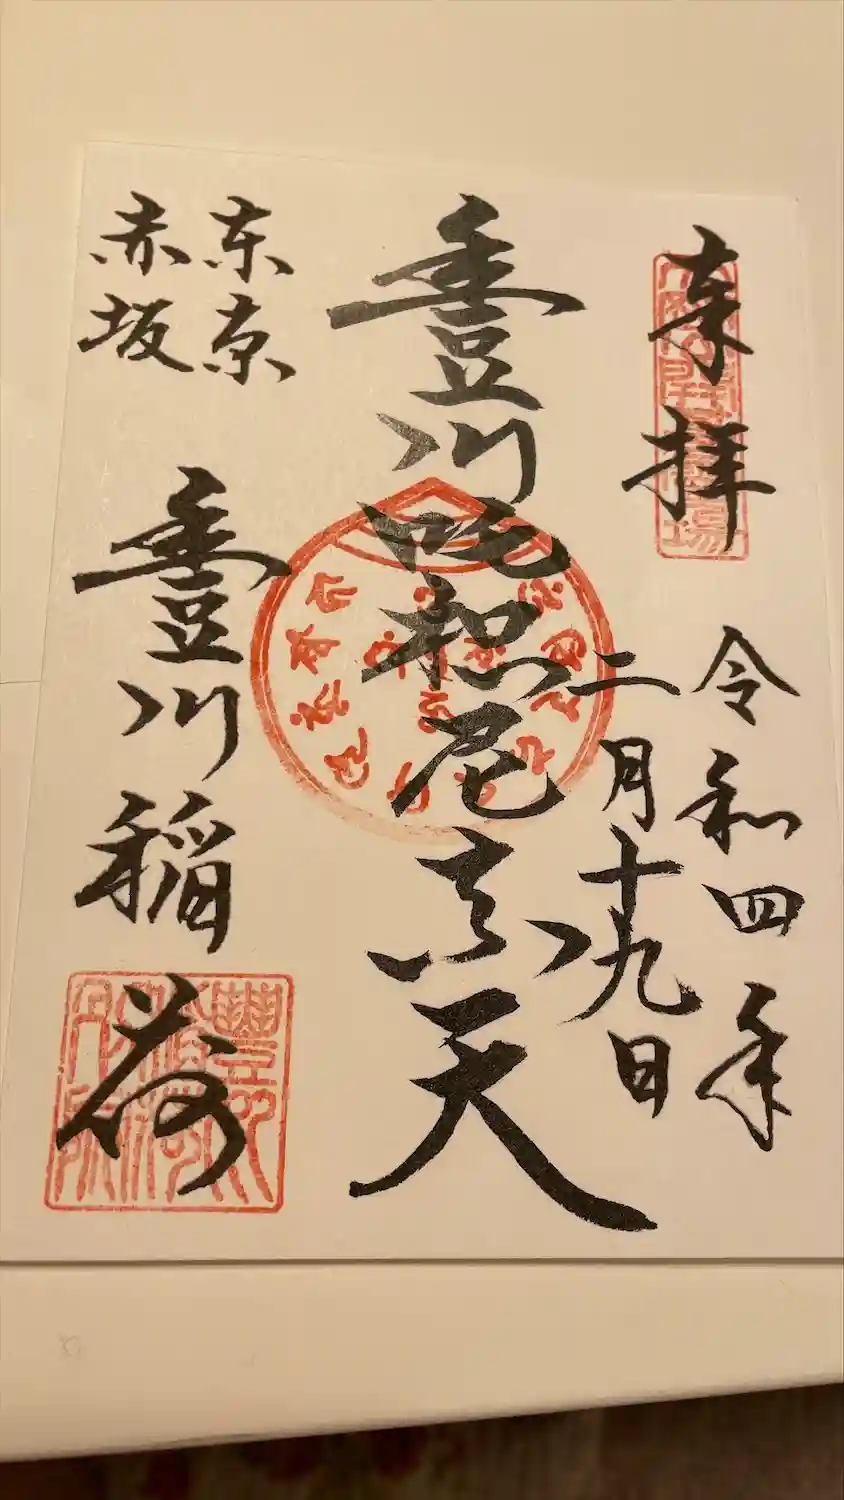 来拝
令和四年
二月十九日
豊川吒枳尼真天
東京
赤坂
豊川稲荷